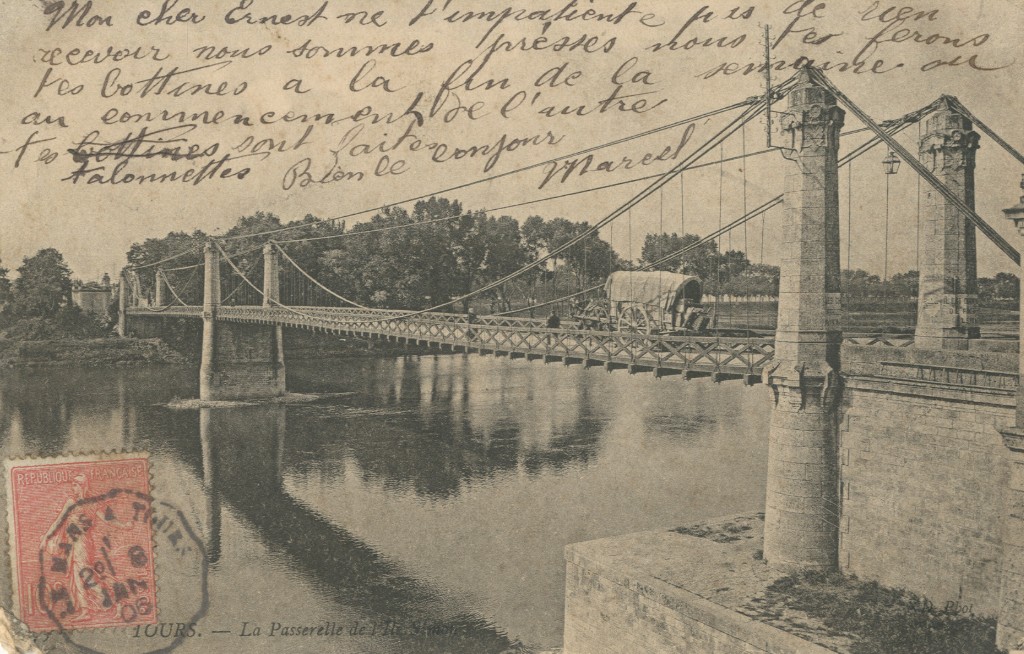 Mon cher Ernest ne t'impatiente pas de rien
recevoir nous sommes pressés nous tes ferons
tes bottines a la fin de la semaine ou
au commencement de l'autre
tes bottines sont faites
talonnettes Bien le bonjour
Marcel
REPUBLIQUE FRANÇAISE
LE MANS A TOURS
29
JANV
06
TOURS. — La Passerelle de l'Ile Simon
N.D. Phot